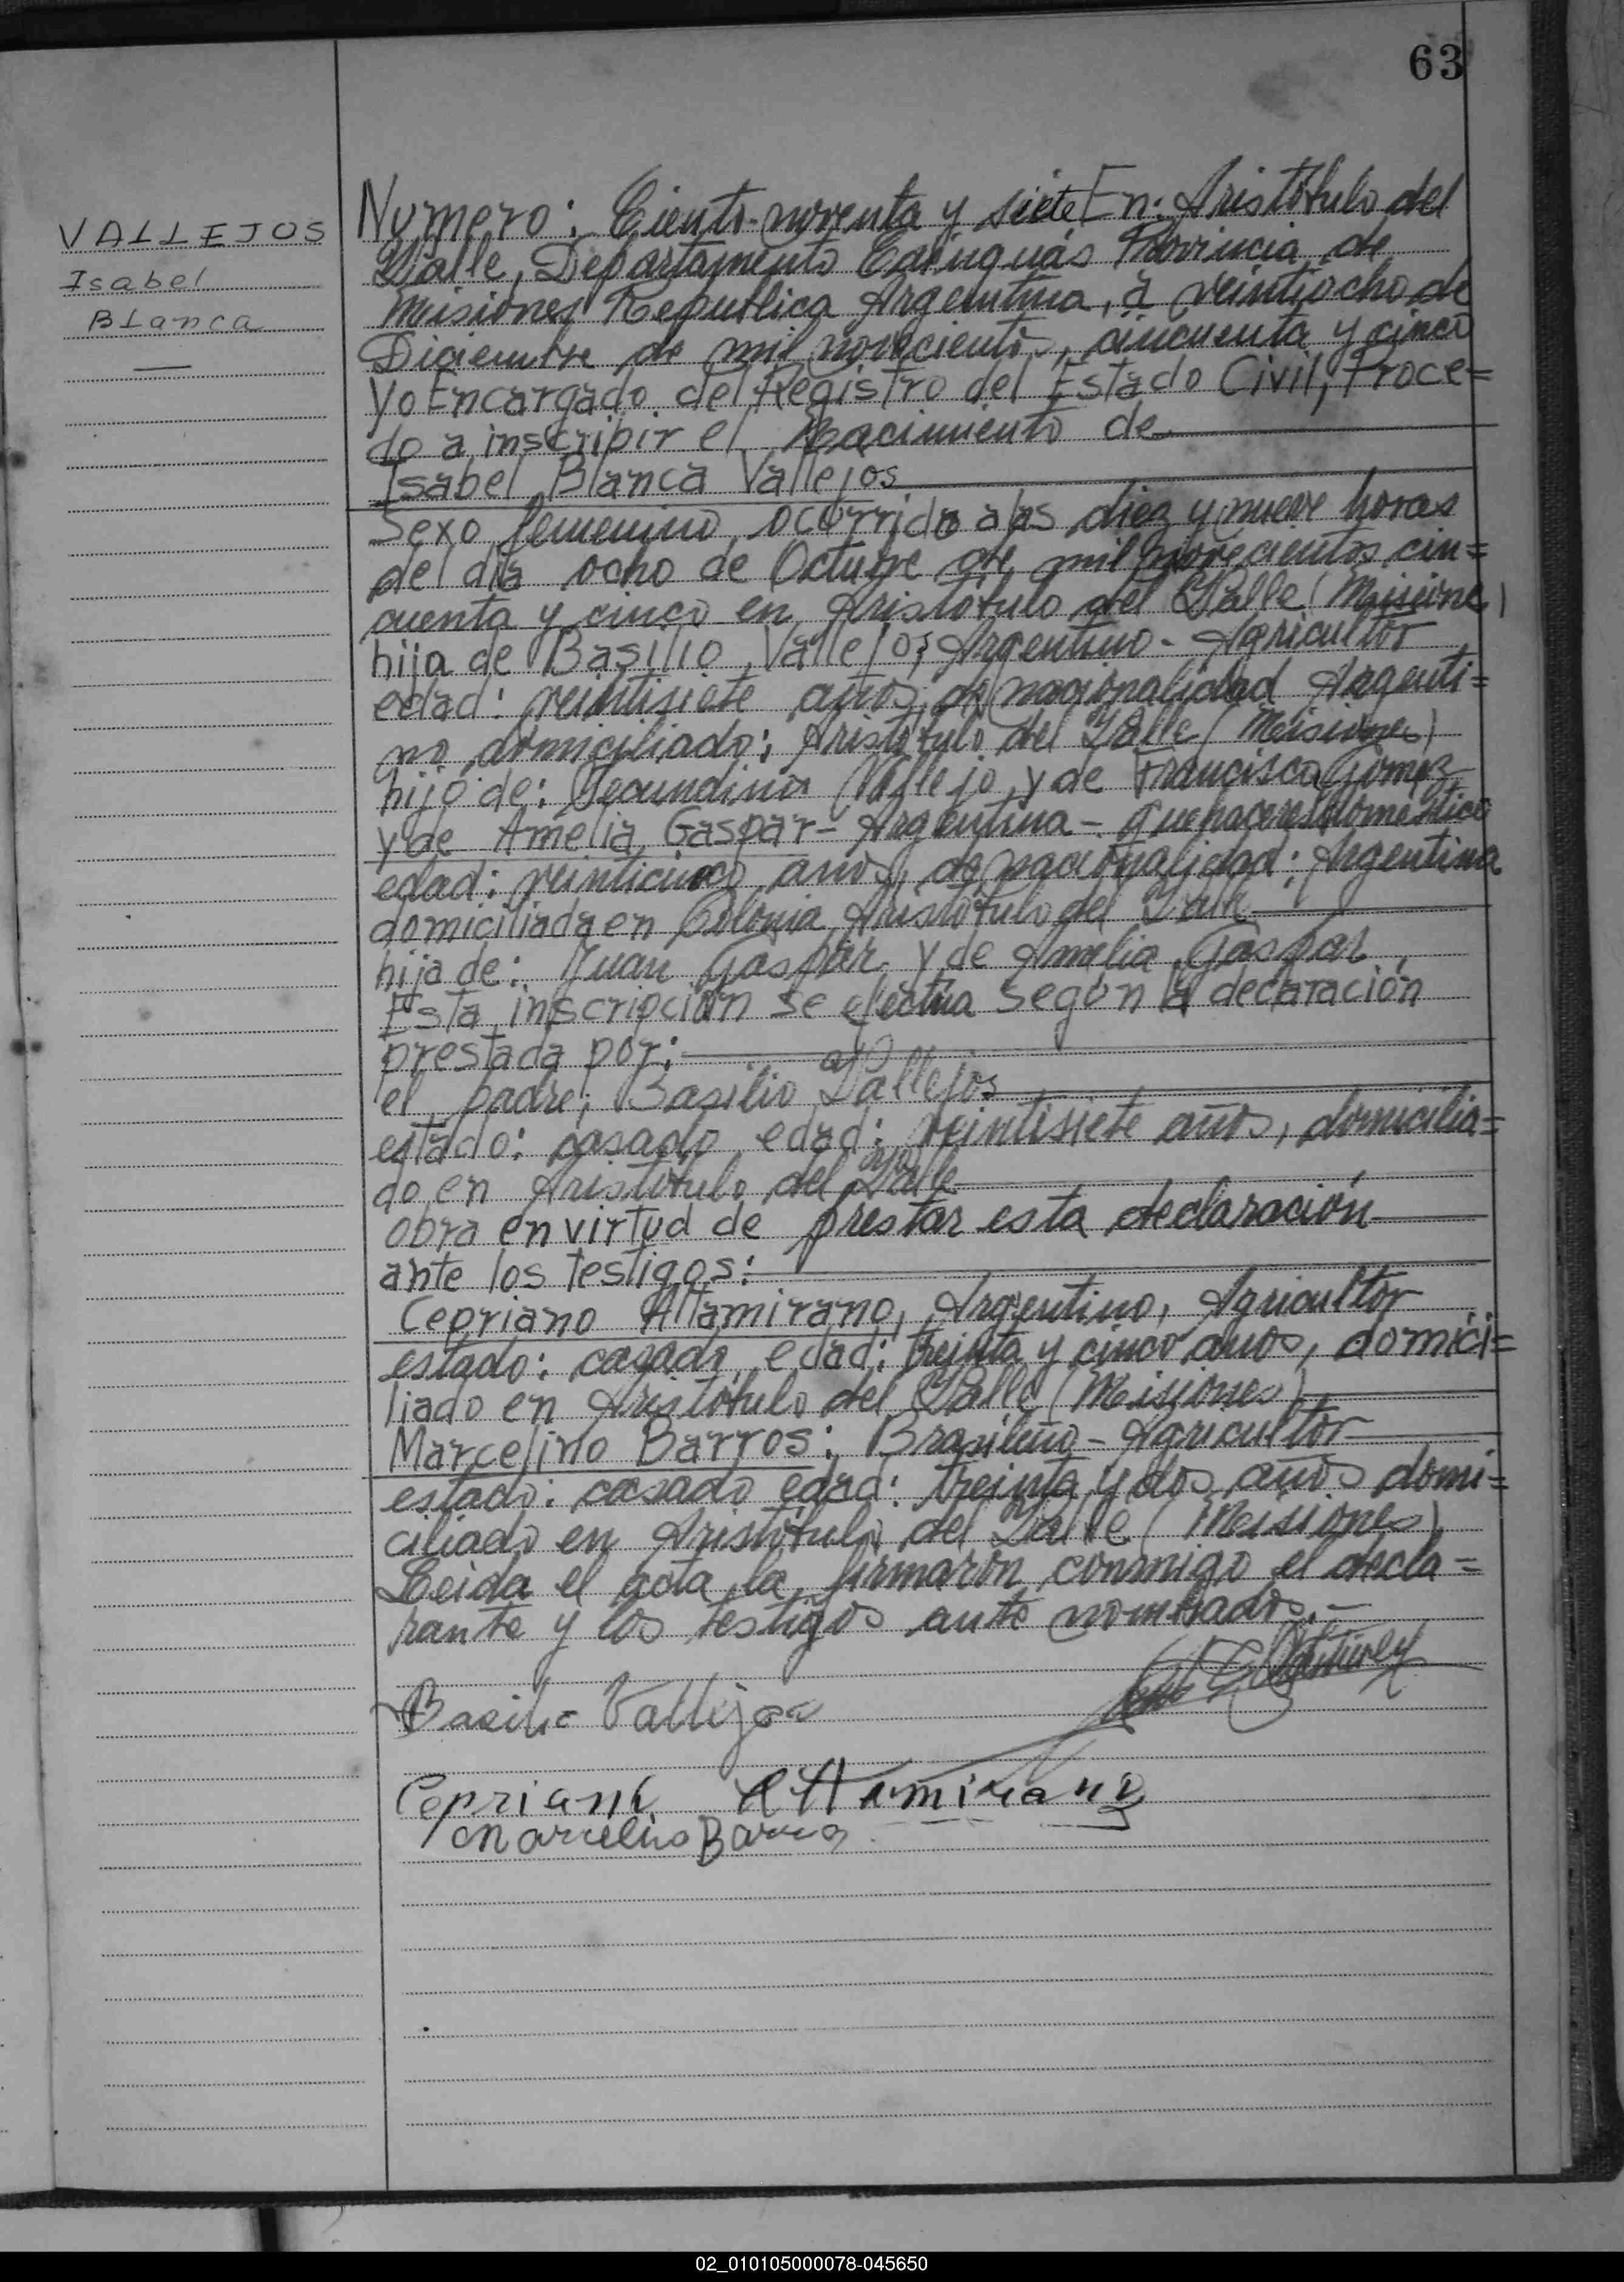 63
VALLEJOS
Isabel
Blanca
Numero: Ciento noventa y siete En: Aristóbulo del
Valle, Departamento Cainguás Provincia de
Misiones Republica Argentina, á veintiocho de
Diciembre de mil novecientos, cincuenta y cinco
Yo Encargado del Registro del Estado Civil, Proce=
do a inscribir el Nacimiento de
Isabel Blanca Vallejos
Sexo femenino ocurrido a las diez y nueve horas
del día ocho de Octubre de mil novecientos cin=
cuenta y cinco en Aristóbulo del Valle (Misiones)
hija de Basilio Vallejos, Argentino - Agricultor
edad: veintisiete años, de nacionalidad Argenti=
no domiciliado: Aristóbulo del Valle (Misiones)
hijo de: Vallejo y de Francisca Gomez
y de Amelia Gaspar - Argentina - quehaceres domestico
edad: veinticinco años, de nacionalidad: Argentina
domiciliada en Colonia Aristóbulo del Valle
hija de: Juan Gaspar y de Amelia Gaspar
Esta inscripción se efectua según la declaración
prestada por:
el padre; Basilio Vallejos
estado: casado edad: veintisiete años, domicilia=
do en Aristóbulo del Valle
obra en virtud de prestar esta declaración
ante los testigos:
Cepriano Altamirano, Argentino, Agricultor
estado: casado edad: treinta y cinco años, domici=
liado en Aristóbulo del Valle (Misiones)
Marcelino Barros: Brasileño - Agricultor
estado: casado edad: treinta y dos años domi=
ciliado en Aristóbulo del Valle (Misiones)
Leida el acta la firmarón conmigo el decla=
rante y los testigos ante nombrados.-
Basilio Vallejos
Cepriano Altamirano
Marcelino Barros
02_010105000078-045650